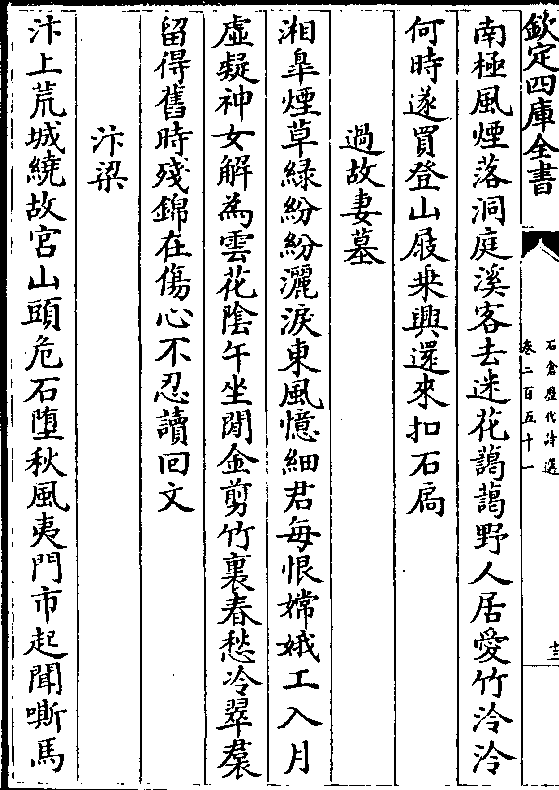 欽定四庫全書
石倉歷代詩選
卷二百五十一
十三
南極風煙落洞庭溪客去迷花藹藹野人居愛竹泠泠
何時遂買登山屐乗興還來扣石扃
過故妻墓
湘臯煙草緑紛紛灑淚東風憶細君每恨嫦娥工入月
虛疑神女解為雲花陰午坐閒金剪竹裏春愁冷翠裠
留得舊時殘錦在傷心不忍讀回文
汴梁
汴上荒城繞故宫山頭危石墮秋風夷門市起聞嘶馬